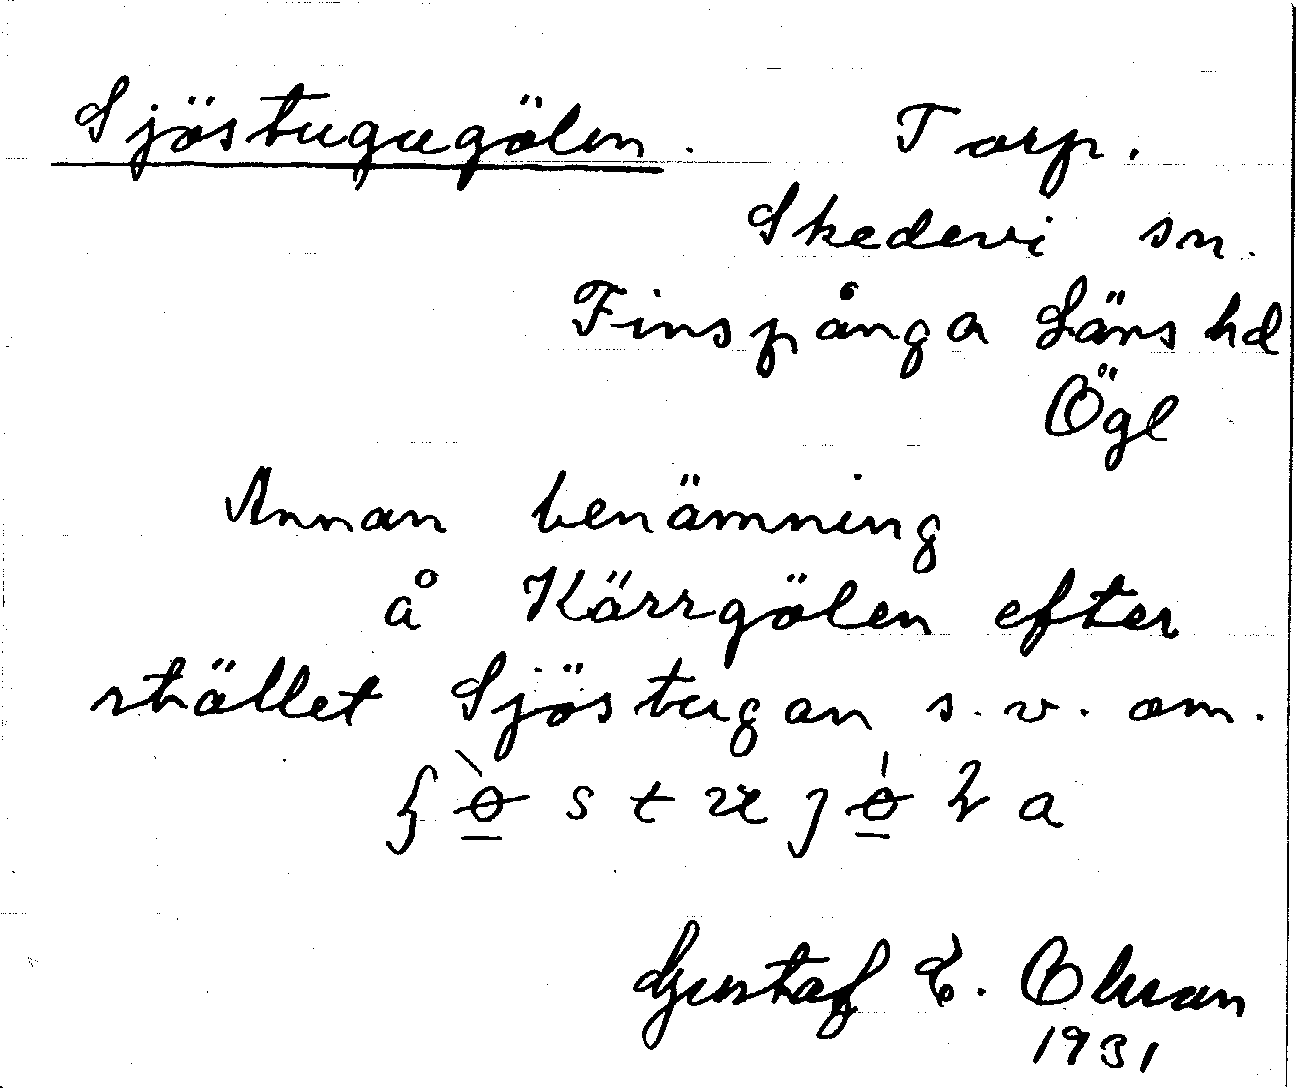 Sjöstugugölen. Torp.
Skedevi sn.
Finspånga Läns hd
Ögl
Annan benämning
å Kärrgölen efter
stället Sjöstugan s.v. om.
Gustaf E. Olsson
1931